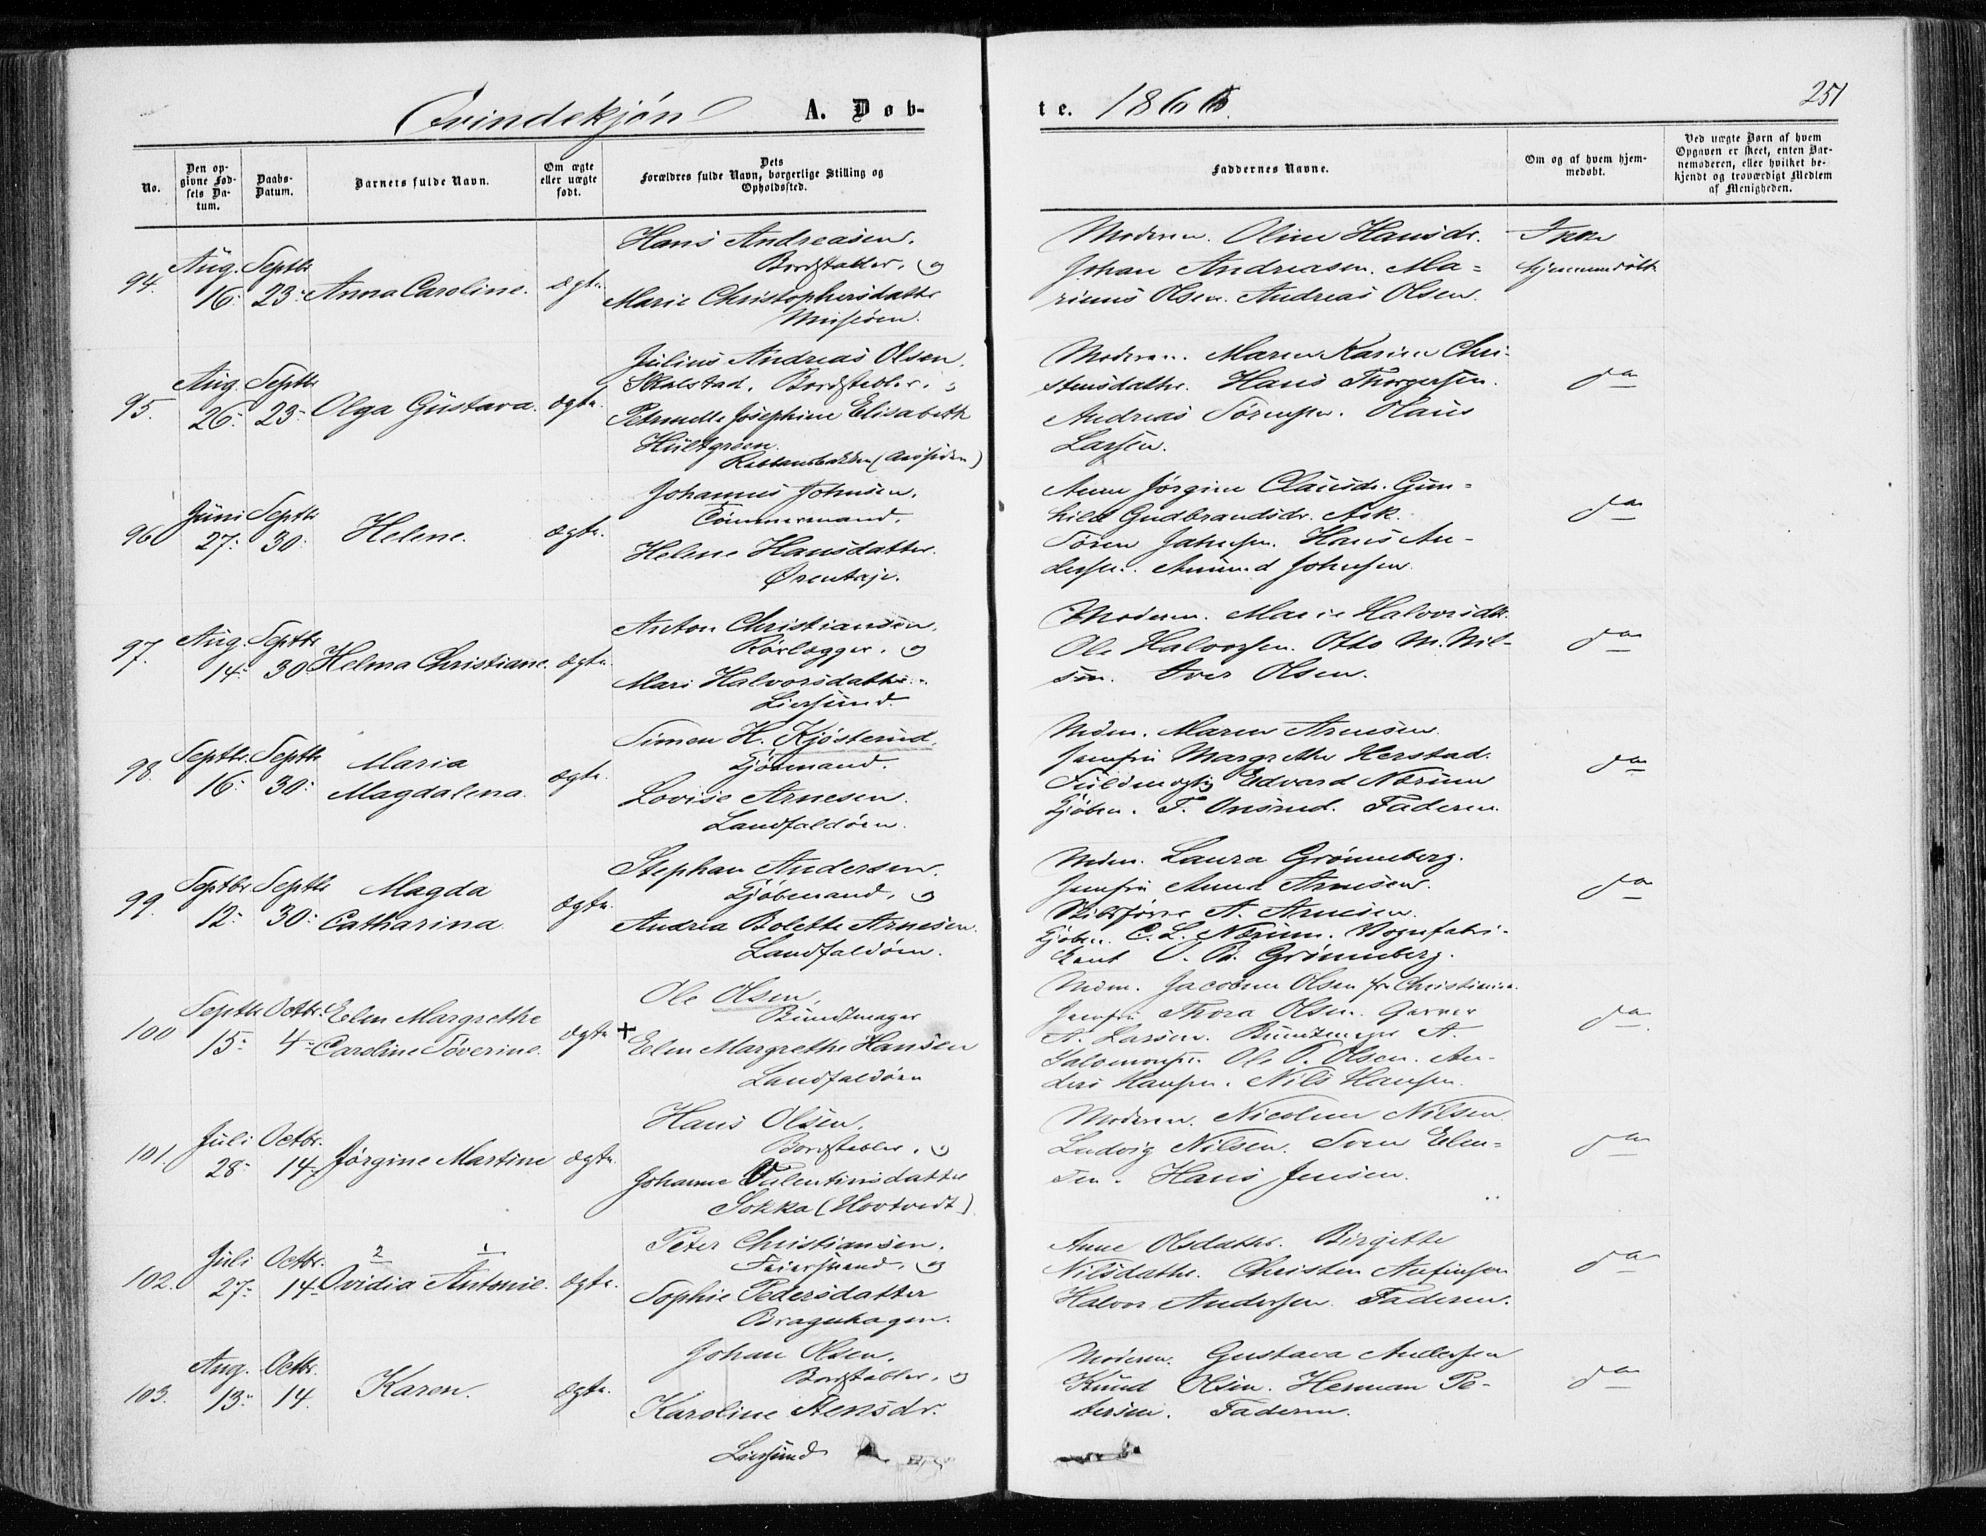 251
Qvindekjøn A. Døb-
te. 1866.
No.
Den op-
givne Fød-
sels Da-
tum.
Daabs-
Datum.
Barnets fulde Navn.
Om ægte
eller uægte
født.
Dets
Forældres fulde Navn, borgerlige Stilling og
Opholdssted.
Faddernes Navne.
Om og af hvem hjem-
medøbt.
Ved uægte Børn af hvem
Opgaven er skeet, enten Bar-
nemoderen, eller hvilket be-
kjendt og troværdigt Medlem
af Menigheden.
94. Aug. 16. Septbr 23. Anna Caroline. ægte.
Hans Andreasen.
Bordstabler. og
Marie Christophersdatter
Moderen. Oline Hansdr.
Johan Andreasen. Ma-
rinus Olsen. Andreas Olsen.
Ikke
hjemmedøbt
95. Aug. 26. Septbr 23. Olga Gustava. ægte.
Julius Andreas Olsen.
Skalstad. Bordstabler. og
Petronelle Josephine Elisabeth
Hultgreen.
Moderen. Maren Karine Chri-
stensdatter. Hans Thorgersen.
Andreas Sørensen. Claus
Larsen.
do
96. Juni 27. Septbr 30. Helene. ægte.
Johannes Johnsen.
Tømmermand.
Helene Hansdatter.
Ørentøje.
Anne Jørgine Clausdr. Gun-
hild Gudbrandsdr. Ask.
Søren Jahnsen. Hans An-
dersen. Amund Johnsen.
do
97. Aug. 14. Septbr 30 Helma Christiane. ægte.
Anton Christiansen.
Rørlægger. og
Mari Halvorsdatter.
Liersund.
Moderen. Marie Halvorsdr.
Ole Halvorsen. Otto M. Nil-
sen. Iver Olsen.
do
98. Septbr. 16. Septbr 30. Maria
Magdalena. ægte.
Simen H. Kjøsterud.
Kjømand.
Lovise Arnesen.
Landfaldøen.
Mdm. Maren Arnesen.
Jomfru Margrethe Herstad.
Fuldmægtig Edvard Nærum
Kjøbm. T. Onsrud. Faderen.
do
99. Septbr 12. Septbr 30. Magda
Catharina. ægte.
Stephan Andersen.
Kjøbmand. og
Andrea Bolette Arnesen.
Landfaldøen.
Mdm. Laura Grønneberg.
Jomfru Anna Arnesen.
Skibsfører A. Arnesen.
Kjøbm. C. L. Nærum. Vognfabri-
kant O. B. Grønneberg.
do
100 Septbr 15. Octbr. 4. Elen Margrethe
Caroline Søverine. ægte +
Ole Olsen.
Bundtmager
Elen Margrethe Hansen
Landfaldøen
Mdm. Jacobine Olsen fr Christiania.
Jomfru Thora Olsen. Garver
A. Larsen. Buntmager A.
Salomonsen. Ole T. Olsen. An-
ders Hansen. Nils Hansen.
do
101. Juli 28. Octbr. 14. Jørgine Martine ægte.
Hans Olsen.
Bordstabler. og
Johanne Valentinsdatter
Sokka (Hovtvedt)
Moderen. Nicoline Nilsen.
Ludvig Nilsen. Sven Elen-
sen. Hans Jensen.
do
102. Juli 27. Octbr. 14. 2 1
Ovidia Antonie. ægte.
Peter Christiansen.
Feiersvend. og
Sophie Pedersdatter
Bragehagen.
Anne Olsdatter. Birgitte
Nilsdatter. Christen Anfinsen
Halvor Andersen. Faderen.
do
103. Aug. 13. Octbr. 14. Karen. ægte.
Johan Olsen.
Bordstabler. og
Karoline Stensdr.
Liersund
Moderen. Gustava Andersen
Knud Olsen. Herman Pe-
tersen. Faderen.
do